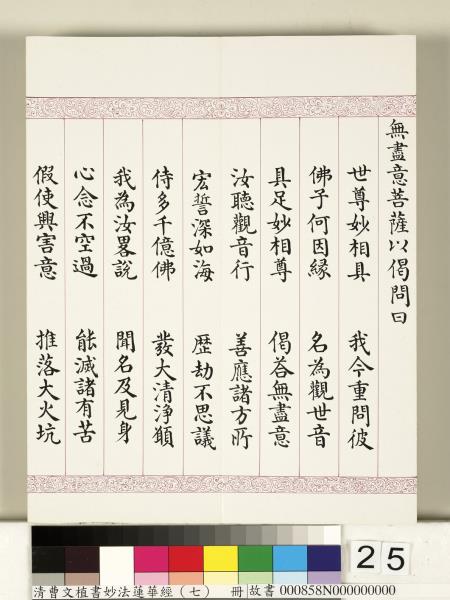 無盡意菩薩以偈問曰
世尊妙相具　我今重問彼
佛子何因緣　名為觀世音
具足妙相尊　偈荅無盡意
汝聽觀音行　善應諸方所
宏誓深如海　歷劫不思議
侍多千億佛　發大清淨願
我為汝畧說　聞名及見身
心念不空過　能滅諸有苦
假使興害意　推落大火坑
25
清曹文植書妙法蓮華經（七）　冊 故書 000858N000000000